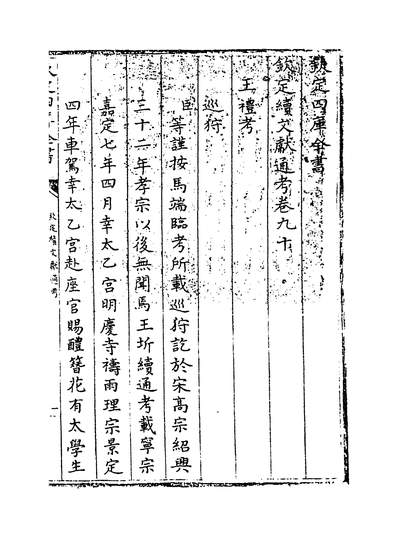 欽定四庫全書
欽定續文獻通考卷九十
王禮考
巡狩
臣等謹按馬端臨考所載巡狩訖於宋高宗紹興
三十二年孝宗以後無聞焉王圻續通考載寧宗
嘉定七年四月幸太乙宮明慶寺禱雨理宗景定
四年車駕幸太乙宮赴座官賜醴簪花有太學生
欽定續文獻通考
一